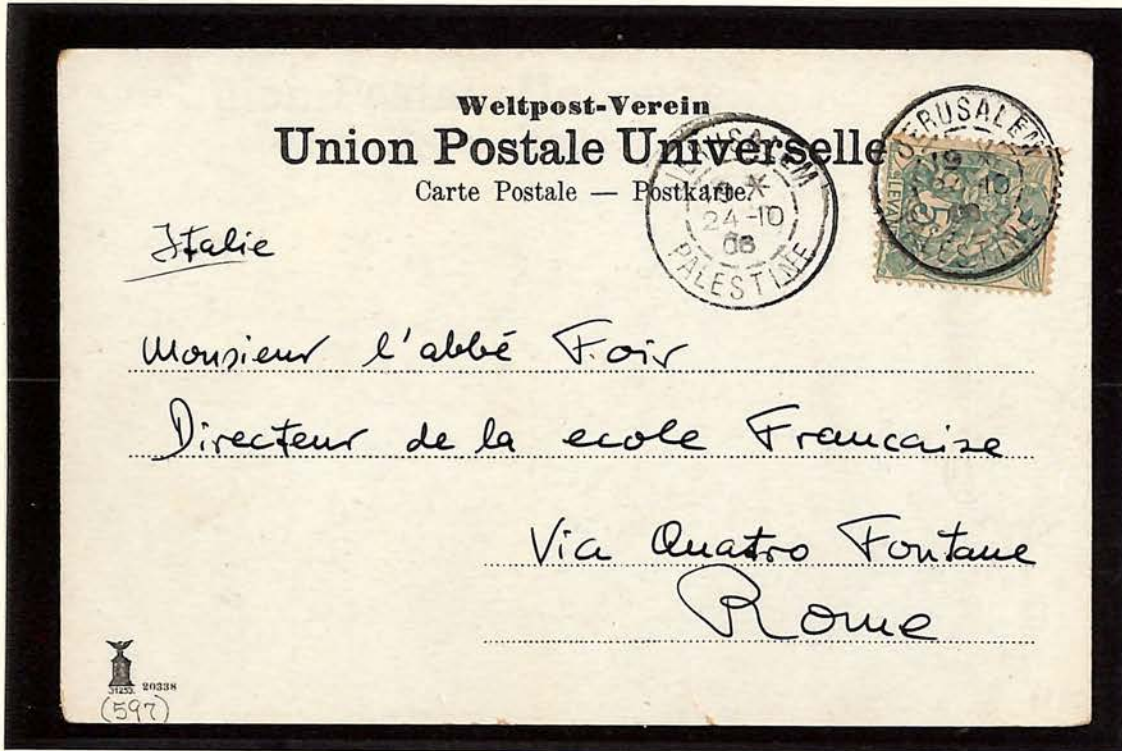 Weltpost-Verein
Union Postale Universelle
Carte Postale — Postkarte.
JERUSALEM
19 *
24-10
06
PALESTINE
JERUSALEM
19 *
10
PALESTINE
LEVA
Italie
Monsieur l'abbé F.oir
Directeur de la ecole Francaise
Via Quatro Fontane
Rome
31253. 20338
(597)